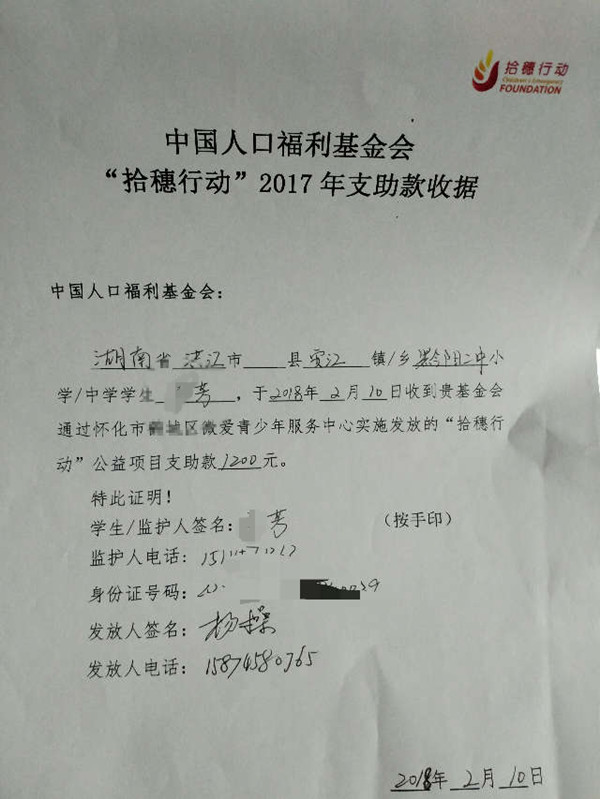 拾穗行动
Children's Emergency
FOUNDATION
中国人口福利基金会
“拾穗行动”2017年支助款收据
中国人口福利基金会：
湖南省洪江市 县 江 镇/乡黔阳二中小
学/中学学生 芳，于2018年2月10日收到贵基金会
通过怀化市 城区微爱青少年服务中心实施发放的“拾穗行
动”公益项目支助款1200元。
特此证明！
学生/监护人签名： 芳 （按手印）
监护人电话：
身份证号码：
发放人签名：杨
发放人电话：15874580765
2018年2月10日